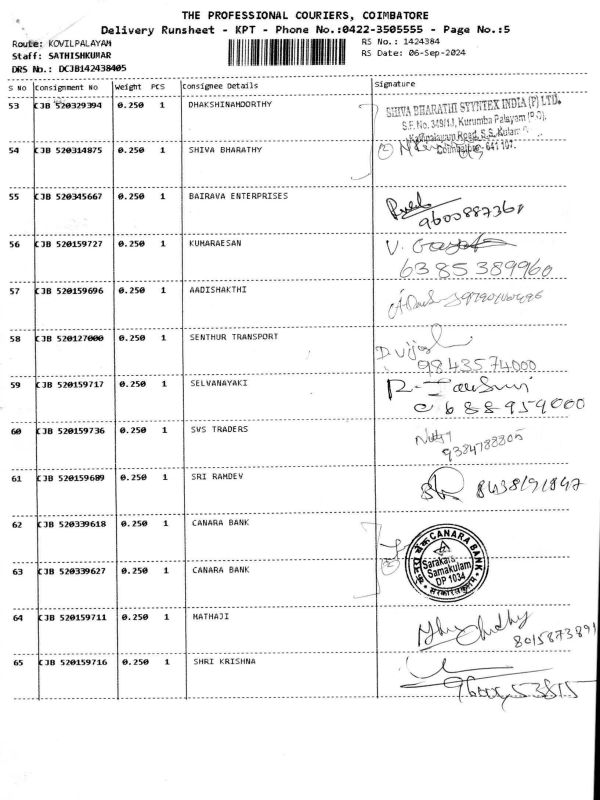 THE PROFESSIONAL COURIERS, COIMBATORE
Delivery Runsheet - KPT - Phone No.:0422-3505555 - Page No.:5
Route: KOVILPALAYAM
RS No.: 1424384
Staff: SATHISHKUMAR
RS Date: 06-Sep-2024
DRS No.: DCJB142438405
S No Consignment No Weight PCS Consignee Details Signature
53 CJB 520329394 0.250 1 DHAKSHINAMOORTHY
SHIVA BHARATHI SYYNTEX INDIA (P) LTD.
S.F. No. 349/1J, Kurumba Palayam (P.O),
Kovilpalayam Road, S.S. Kulam
Coimbatore - 641 107.
54 CJB 520314875 0.250 1 SHIVA BHARATHY
55 CJB 520345667 0.250 1 BAIRAVA ENTERPRISES
9600887368
56 CJB 520159727 0.250 1 KUMARAESAN
V.
6385389960
57 CJB 520159696 0.250 1 AADISHAKTHI
58 CJB 520127000 0.250 1 SENTHUR TRANSPORT
D. Vijay
9843574000
59 CJB 520159717 0.250 1 SELVANAYAKI
60 CJB 520159736 0.250 1 SVS TRADERS
9384788805
61 CJB 520159689 0.250 1 SRI RAMDEV
62 CJB 520339618 0.250 1 CANARA BANK
CANARA BANK
Sarkar
Samakulam
DP 1034
63 CJB 520339627 0.250 1 CANARA BANK
64 CJB 520159711 0.250 1 MATHAJI
8015873891
65 CJB 520159716 0.250 1 SHRI KRISHNA